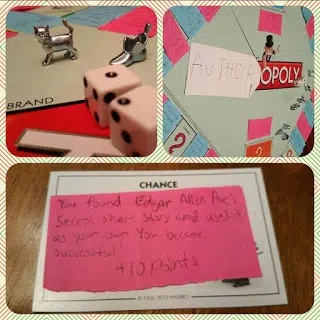 BRAND
AUTHOR
OPOLY
CHANCE
You found Edgar Allen Poe's
Secret short story and used it
as your own You become
successful!
+10 points